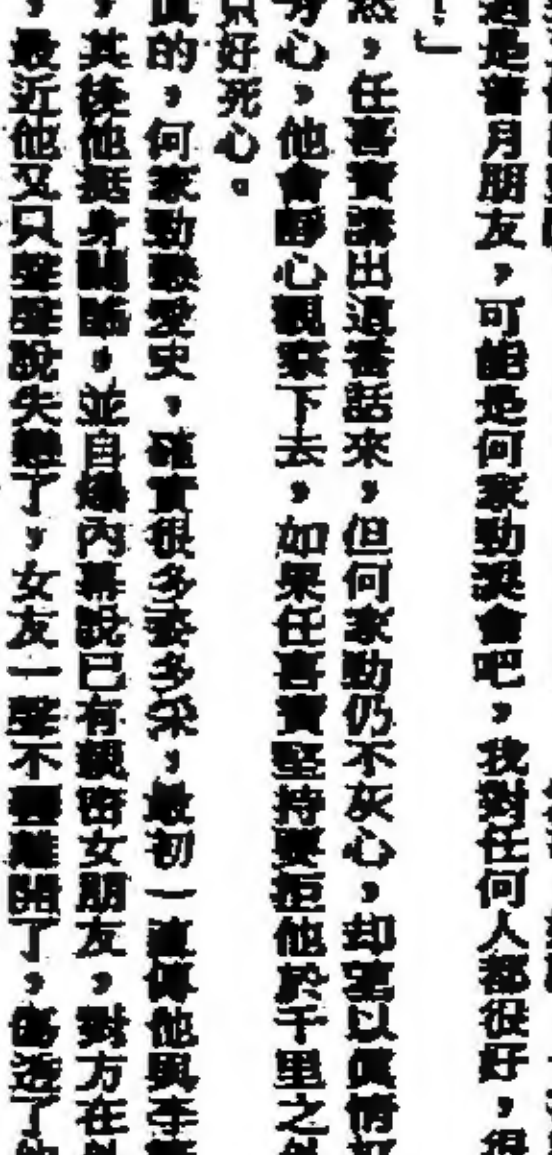 過是普月朋友，可能是何家勁誤會吧，我對任何人都很好，很
！」
然，任喜寶講出這番話來，但何家勁仍不灰心，却望以真情打
芳心，他會靜心觀察下去，如果任喜寶堅持要拒他於千里之外
只好死心。
真的，何家勁戀愛史，確實很多姿多采，最初一直傳他與李
，其後他挺身闢謠，並自爆內幕說已有親密女朋友，對方在外
，最近他又只聲聲說失戀了，女友一聲不響離開了，傷透了他